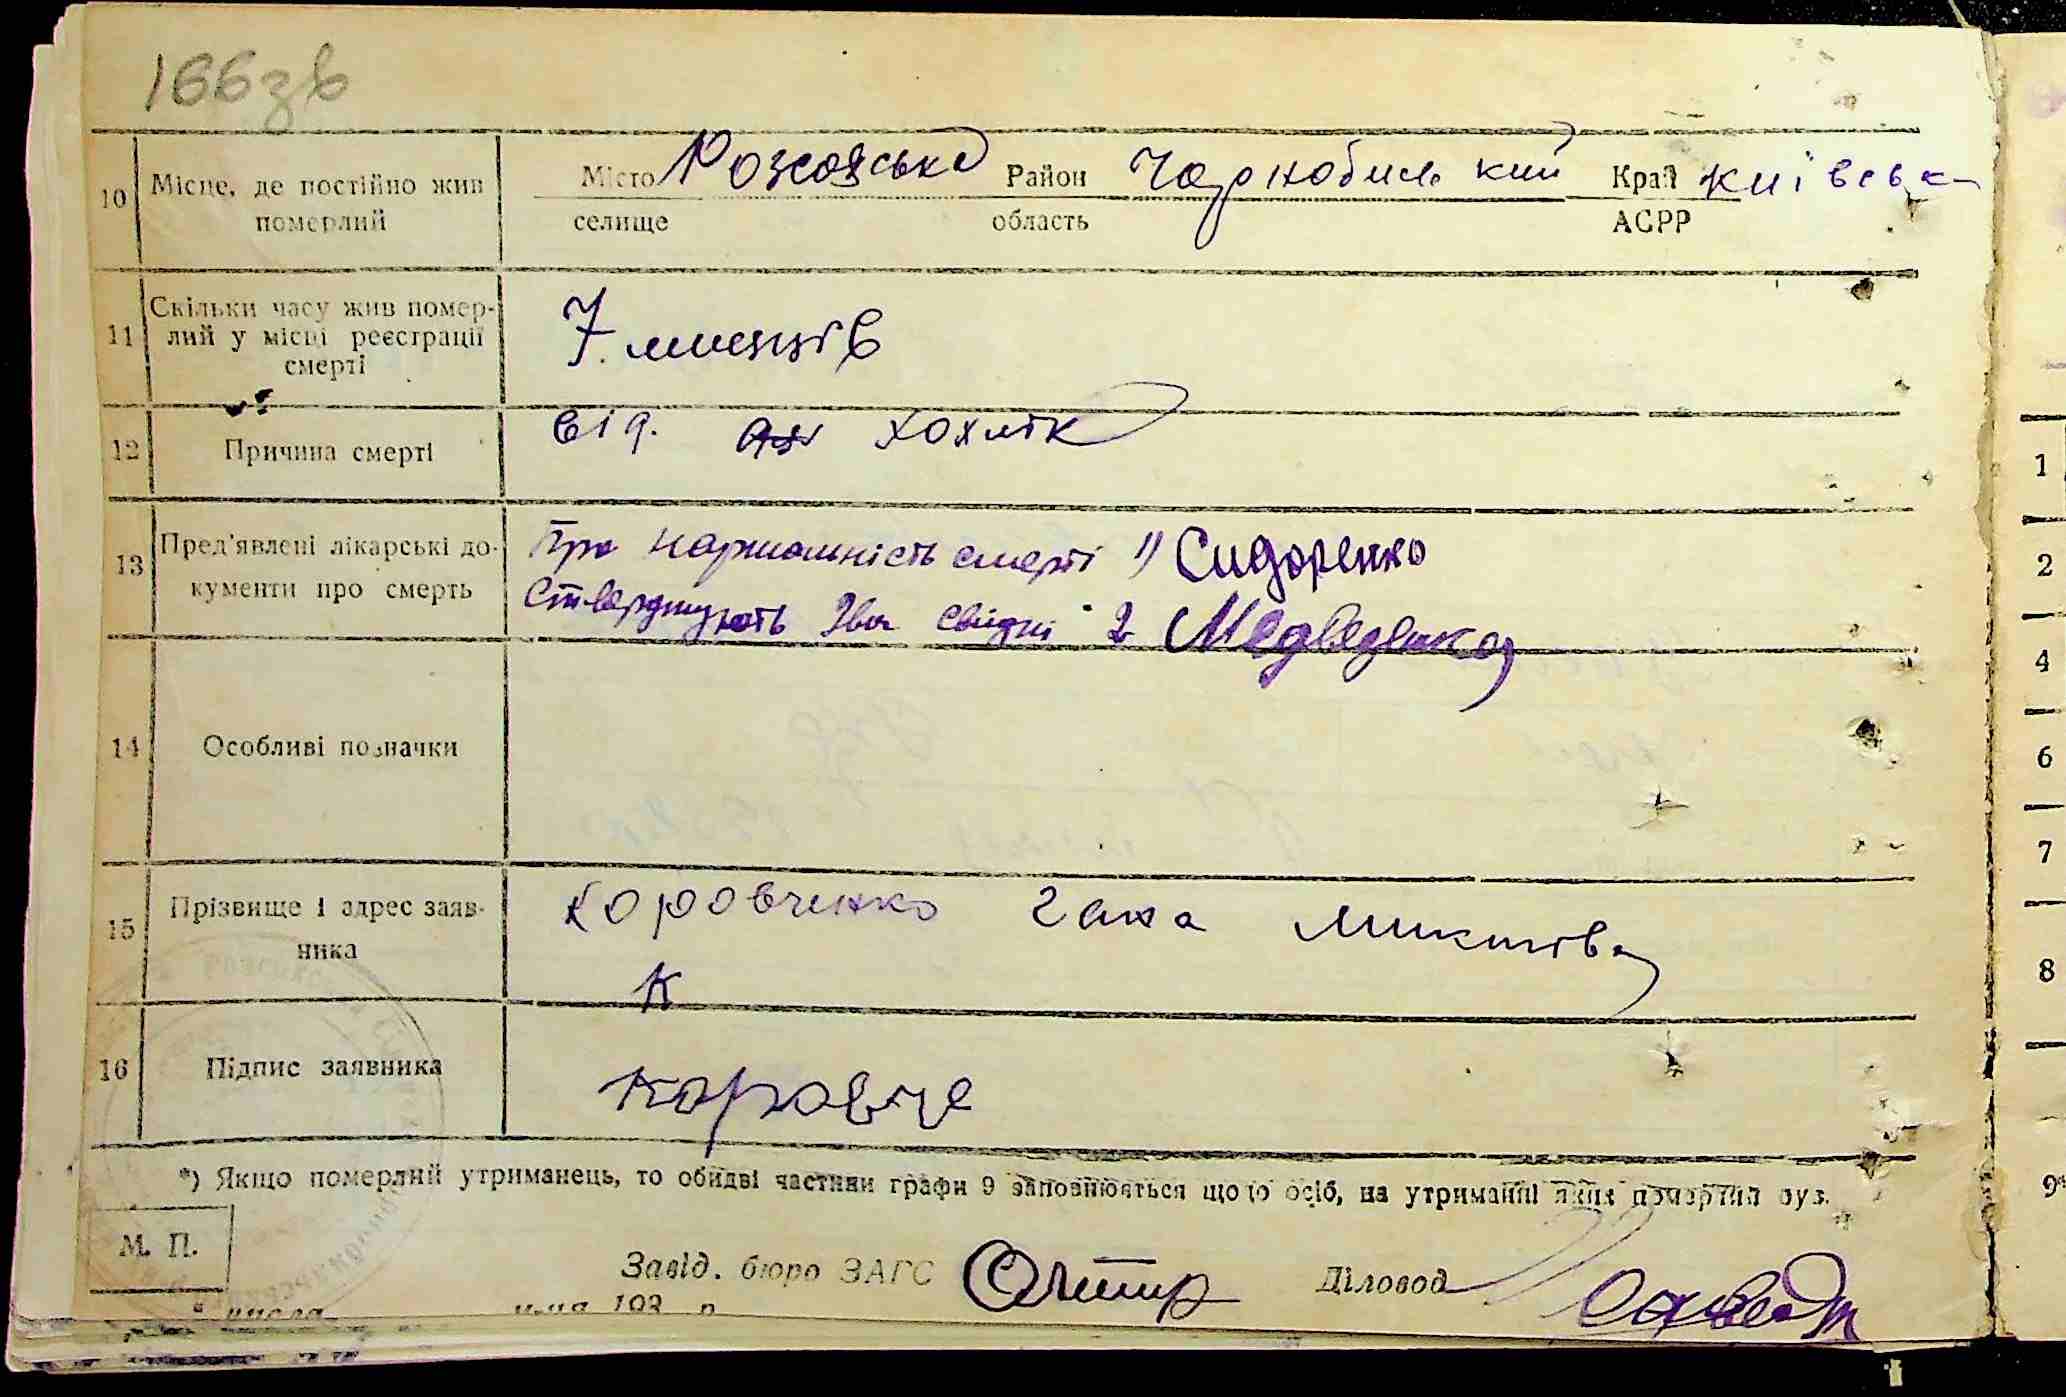 166зв
10 Місце, де постійно жив померлий
Місто селище Район Чорнобильский Край Київськ
область АСРР
11 Скільки часу жив померлий у місці реєстрації смерті
7. мисяців
12 Причина смерті
від. Кохлюк
13 Пред'явлені лікарські документи про смерть
Про нормальність смерті 1) Сидоренко
Стверджують два свідки 2 Медведенко
14 Особливі позначки
15 Прізвище і адрес заявника
Коровченко Гана Микитівна
К
16 Підпис заявника
Коровче
*) Якщо померлий утриманець, то обидві частини графи 9 заповнюються щодо осіб, на утриманні яких померлий був.
М. П.
Завід. бюро ЗАГС Діловод
числа 193 р
1
2
4
6
7
8
9